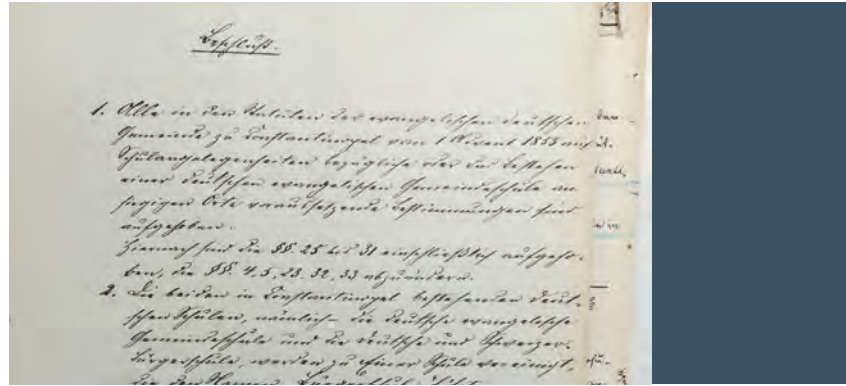 Beschluß.
1. Alle in den Statuten der evangelischen deutschen
Gemeinde zu Constantinopel vom 1 Advent 1855 auf
Schulangelegenheiten bezügliche oder das Bestehen
einer deutschen evangelischen Gemeindeschule am
hiesigen Orte voraussetzende Bestimmungen sind
aufgehoben.
Hiernach sind die §§. 25 bis 31 einschließlich aufgeho-
ben, die §§. 4, 5, 23. 32, 33 abzuändern.
2. Die beiden in Constantinopel bestehenden deut-
schen Schulen, nämlich die deutsche evangelische
Gemeindeschule und die deutsche und Schweizer-
bürgerschule, werden zu einer Schule vereinigt,
die den Namen